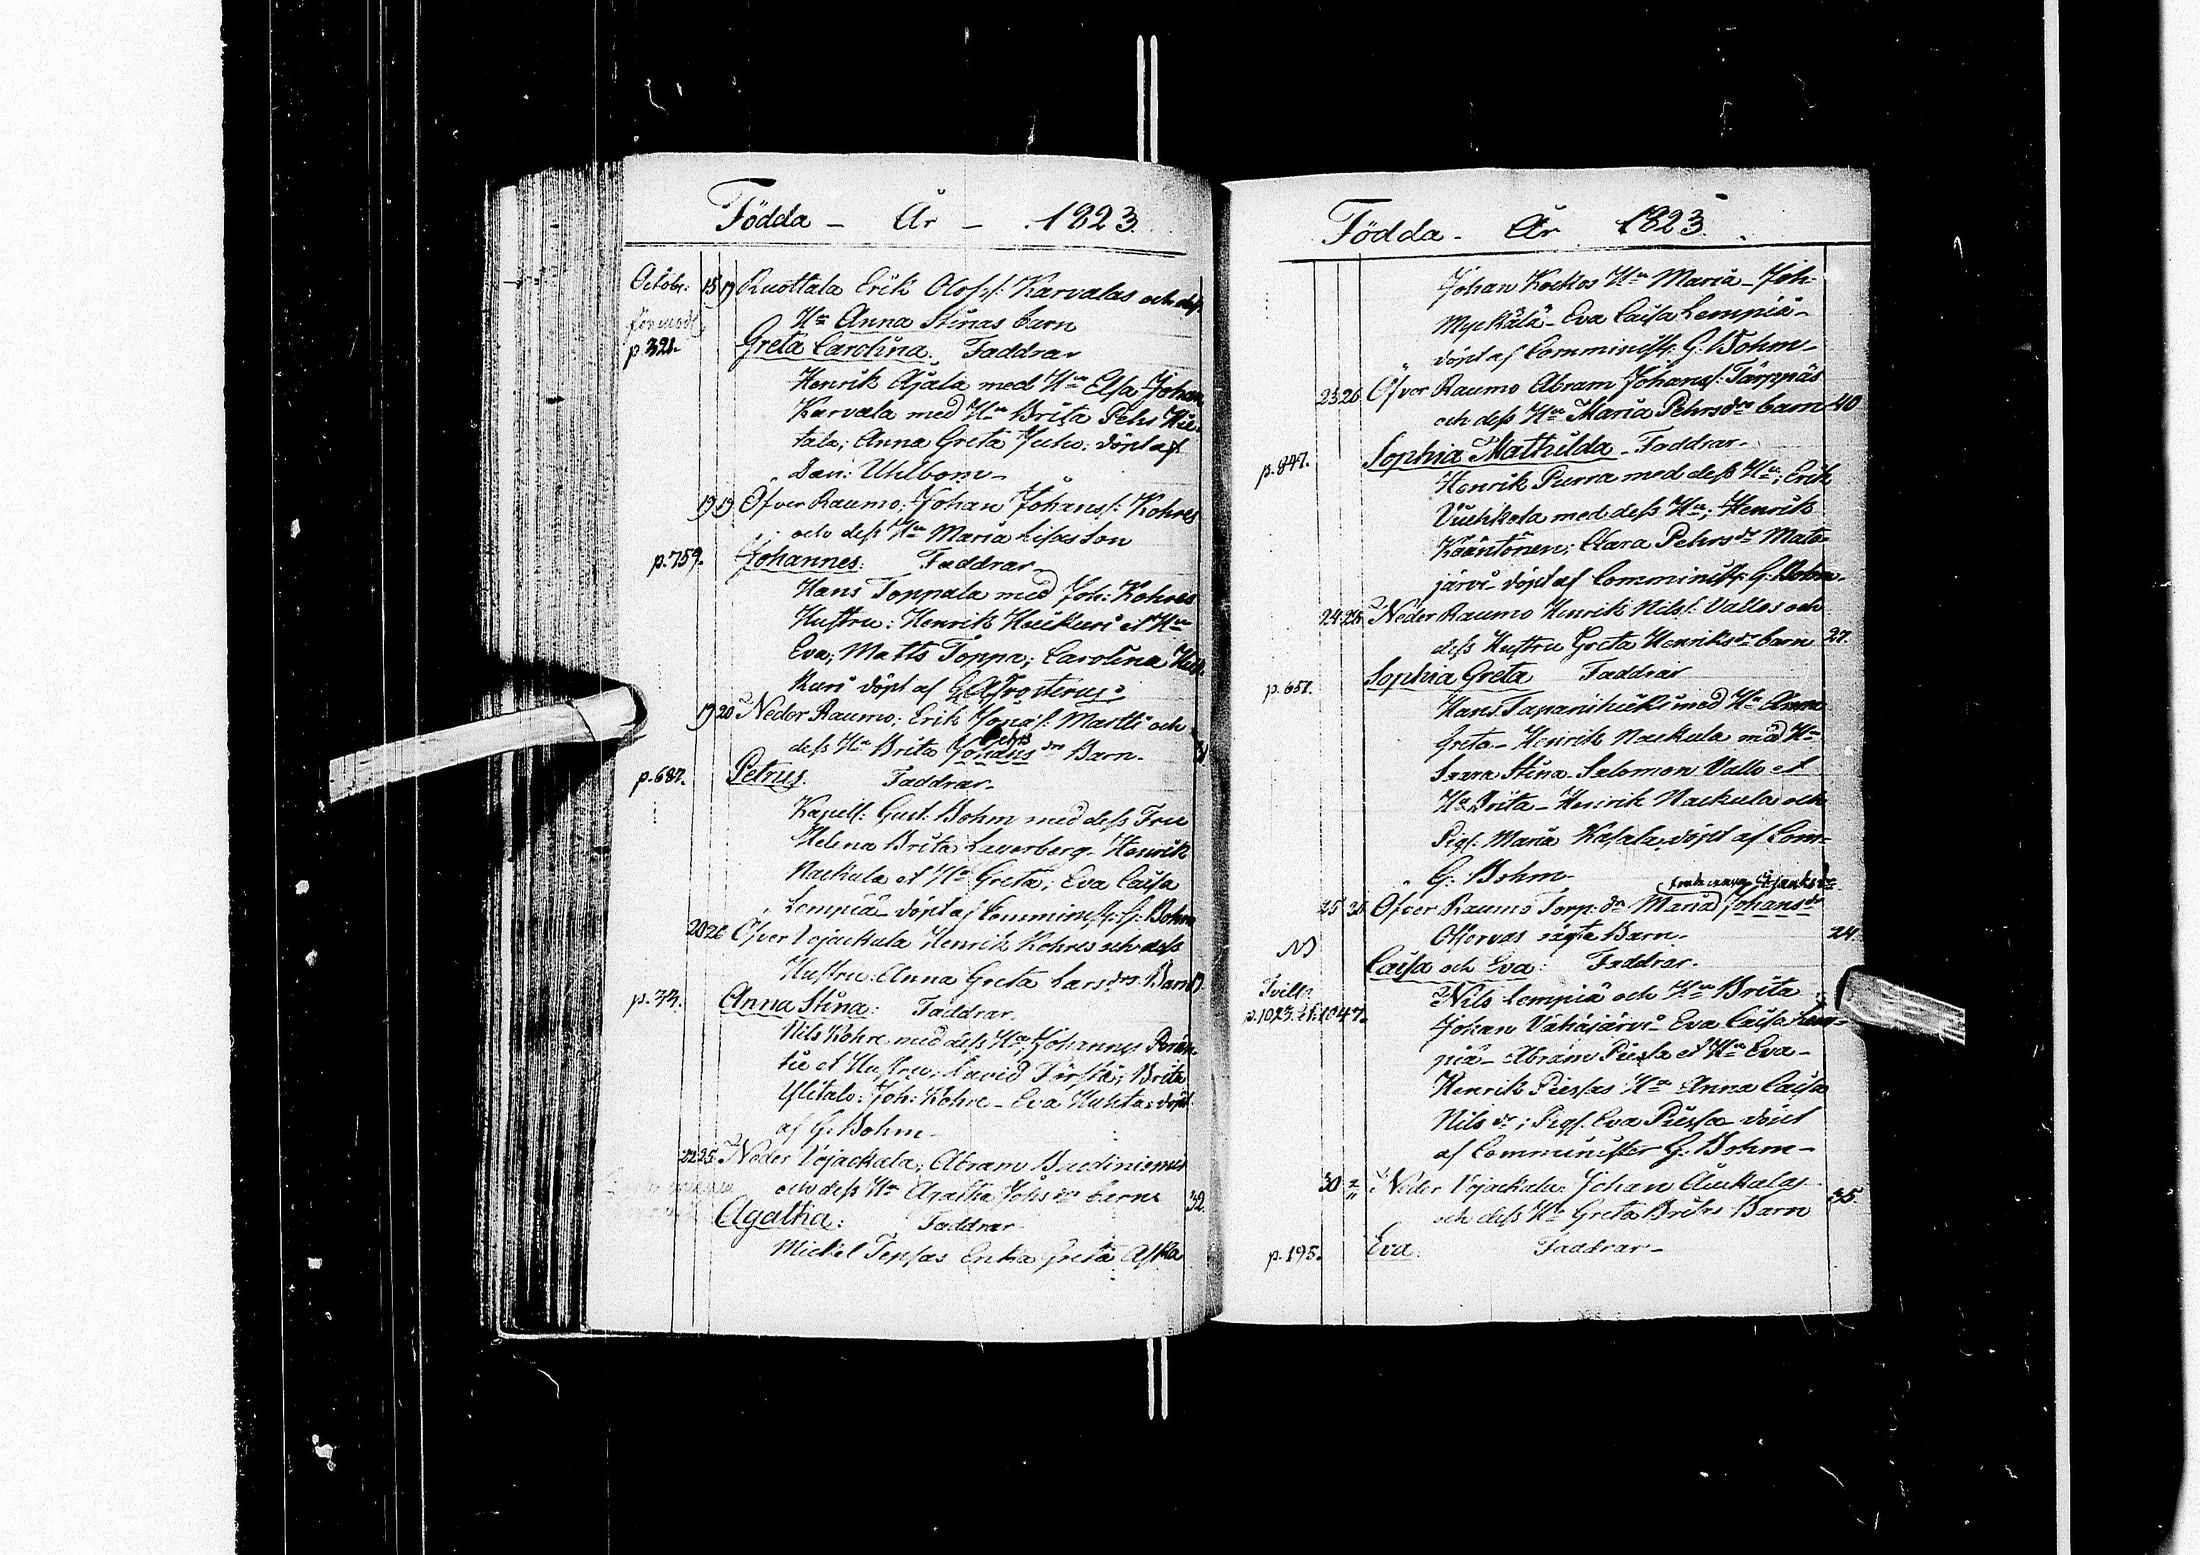 Födda - År - 1823.
Octobr. 15 17 Ruottala Erik Olofss: Karvalas och dess
Hu Anna Stinas barn
p. 321. Greta Carolina. Faddrar
Henrik Ajala med Hu Elsa Johan
Karvala med Hu Brita Pehr Hie-
tala; Anna Greta Juho: döpt af
Dan: Uhlbom-
19 19 Öfver Raumo; Johan Johanss: Kohres
och dess Hu Maria Lisas Son
p. 759. Johannes: Faddrar.
Hans Toppala med Joh: Kohres
Hustru: Henrik Huikuri et Hu
Eva; Matts Toppa; Carolina Hui-
kuri döpt af Frosterus
19 20 Neder Raumo; Erik Jonass: Martti och
dess Hu Brita Jonaus Pehrs dr Barn. 31
p. 687. Petrus. Faddrar.
Kapell: Gust: Bohm med dess Fru
Helena Brita Laverberg. Henrik
Naekula et Hu Greta; Eva Caisa
Lempiä döpt af Comminist: G: Bohm
20 26 Öfver Vojackala Henrik Kohres och dess
Hustru: Anna Greta Larsdrs Barn
p. 33. Anna Stina: Faddrar.
Nils Kohre med dess Hu; Johannes
et Hustru; David Brita
Ylitalo: Joh: Kohre - Eva Huhta: döpt
af G: Bohm-
22 25 Neder Vojackala; Abram
och dess Hu Agatha Johs dr barn 32.
Agatha: Faddrar
Mickel Tepsas Enka Greta Aska
Födda - År 1823.
Johan Kockos Hu Maria - Joh-
Myckälä - Eva Caisa Lempiä-
döpt af Comminist: G: Bohm-
23 26 Öfver Raumo Abram Johanss: Tärppäs
och dess Hu Maria Pehrsdrs barn 40
p. 847. Sophia Mathilda - Faddrar-
Henrik Purra med dess Hu; Erik
Vuehkola med dess Hu; Henrik
Kääntönen; Clara Pehrsdr Mata-
järvi - döpt af Comminist: G: Bohm-
24 25 Neder Raumo Henrik Nilss: Vallos och
dess Hustru Greta Henriksdrs barn 27.
p. 657. Sophia Greta Faddrar
Hans Tapanihuki med Hu Anna
Greta - Henrik Naekula med Hu
Saara Stina - Salomon Vallo et
Hu Brita - Henrik Naekula och
Pigs: Maria döpt af Com-
G: Bohm-
25 26 Öfver Raumo Torp: dr Maria Johans dr
oägta Barn. 24
Caisa och Eva: Faddrar.
Tvill:
p. 1023. et 1047. Nils Lempiä och Hu Brita
Johan Vähäjärvi - Eva Caisa Lem-
piä - Abram Piessa et Hu Eva-
Henrik Piessas Hu Anna Caisa
Nils dr; Pigs: Eva Piessa - döpt
af Comminister G: Bohm-
30 2/11 Neder Vojackala: Johan Auckalas
och dess Hu Greta Britas Barn 35.
p. 195. Eva. Faddrar-